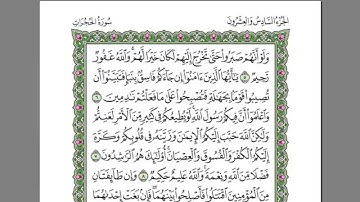 الجزء السادس والعشرون
سورة الحجرات
وَلَوْ أَنَّهُمْ صَبَرُوا۟ حَتَّىٰ تَخْرُجَ إِلَيْهِمْ لَكَانَ خَيْرًا لَّهُمْ ۚ وَٱللَّهُ غَفُورٌ
رَّحِيمٌ ٥ يَـٰٓأَيُّهَا ٱلَّذِينَ ءَامَنُوٓا۟ إِن جَآءَكُمْ فَاسِقٌۢ بِنَبَإٍ فَتَبَيَّنُوٓا۟ أَن
تُصِيبُوا۟ قَوْمًۢا بِجَهَـٰلَةٍ فَتُصْبِحُوا۟ عَلَىٰ مَا فَعَلْتُمْ نَـٰدِمِينَ ٦
وَٱعْلَمُوٓا۟ أَنَّ فِيكُمْ رَسُولَ ٱللَّهِ ۚ لَوْ يُطِيعُكُمْ فِى كَثِيرٍ مِّنَ ٱلْأَمْرِ لَعَنِتُّمْ
وَلَـٰكِنَّ ٱللَّهَ حَبَّبَ إِلَيْكُمُ ٱلْإِيمَـٰنَ وَزَيَّنَهُۥ فِى قُلُوبِكُمْ وَكَرَّهَ
إِلَيْكُمُ ٱلْكُفْرَ وَٱلْفُسُوقَ وَٱلْعِصْيَانَ ۚ أُو۟لَـٰٓئِكَ هُمُ ٱلرَّٰشِدُونَ ٧
فَضْلًا مِّنَ ٱللَّهِ وَنِعْمَةً ۚ وَٱللَّهُ عَلِيمٌ حَكِيمٌ ٨ وَإِن طَآئِفَتَانِ
مِنَ ٱلْمُؤْمِنِينَ ٱقْتَتَلُوا۟ فَأَصْلِحُوا۟ بَيْنَهُمَا ۖ فَإِنۢ بَغَتْ إِحْدَىٰهُمَا